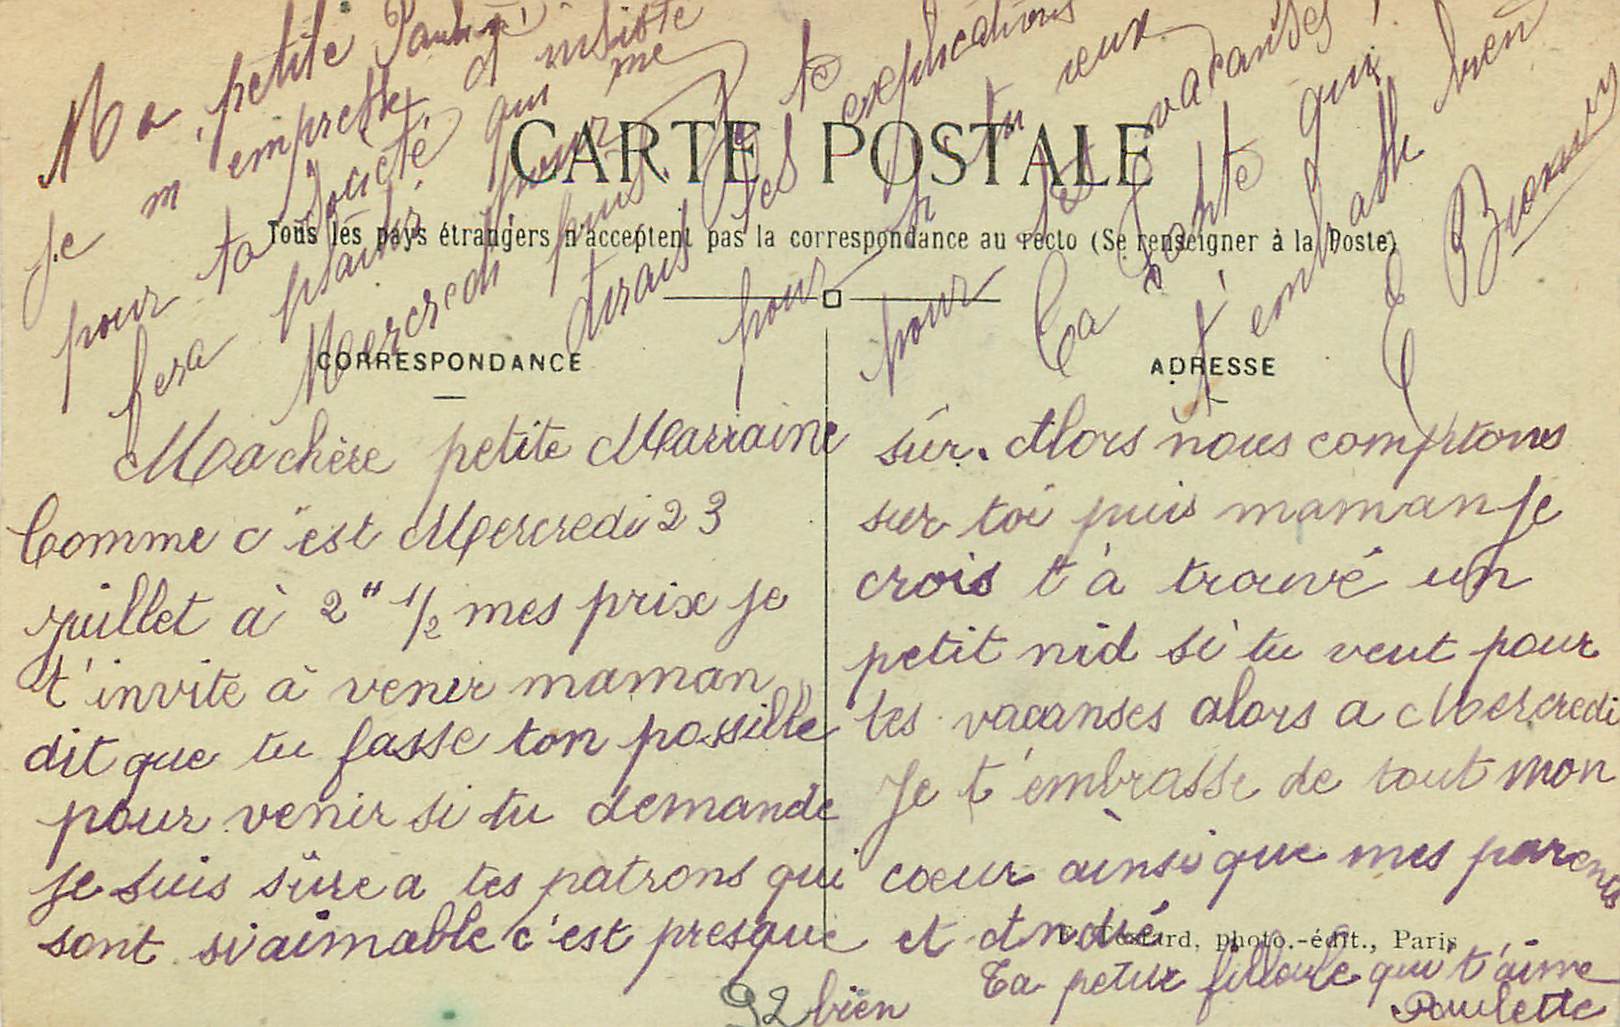 Ma petite Pauline
je m'empresse d'insiste
pour ta Société qui me
fera plaisir pour
Mercredi puis je te
dirais des explications
pour si tu veux
pour les vacances !
Ta Tante qui
t'embrasse bien
E
CARTE POSTALE
Tous les pays étrangers n'acceptent pas la correspondance au recto (Se renseigner à la Poste)
CORRESPONDANCE
Ma chère petite Marraine
Comme c'est Mercredi 23
juillet à 2" 1/2 mes prix je
t'invite à venir maman
dit que tu fasse ton possible
pour venir si tu demande
je suis sûre a tes patrons qui
sont si aimable c'est presque
ADRESSE
sûr. Alors nous comptons
sur toi puis maman je
crois t'à trouvé un
petit nid si tu veut pour
tes vacanses alors a Mercredi
Je t'embrasse de tout mon
coeur ainsi que mes parents
et André
photo.-édit., Paris
Ta petite filleule qui t'aime
bien Paulette
92